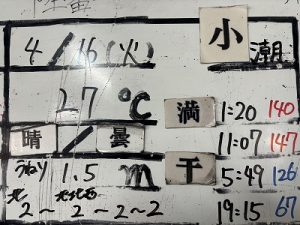 4/16(火) 小潮
27℃ 満 1:20 140
晴/曇 11:07 147
うねり 1.5m 干 5:49 126
北 北北西
2~2~2~2 19:15 67